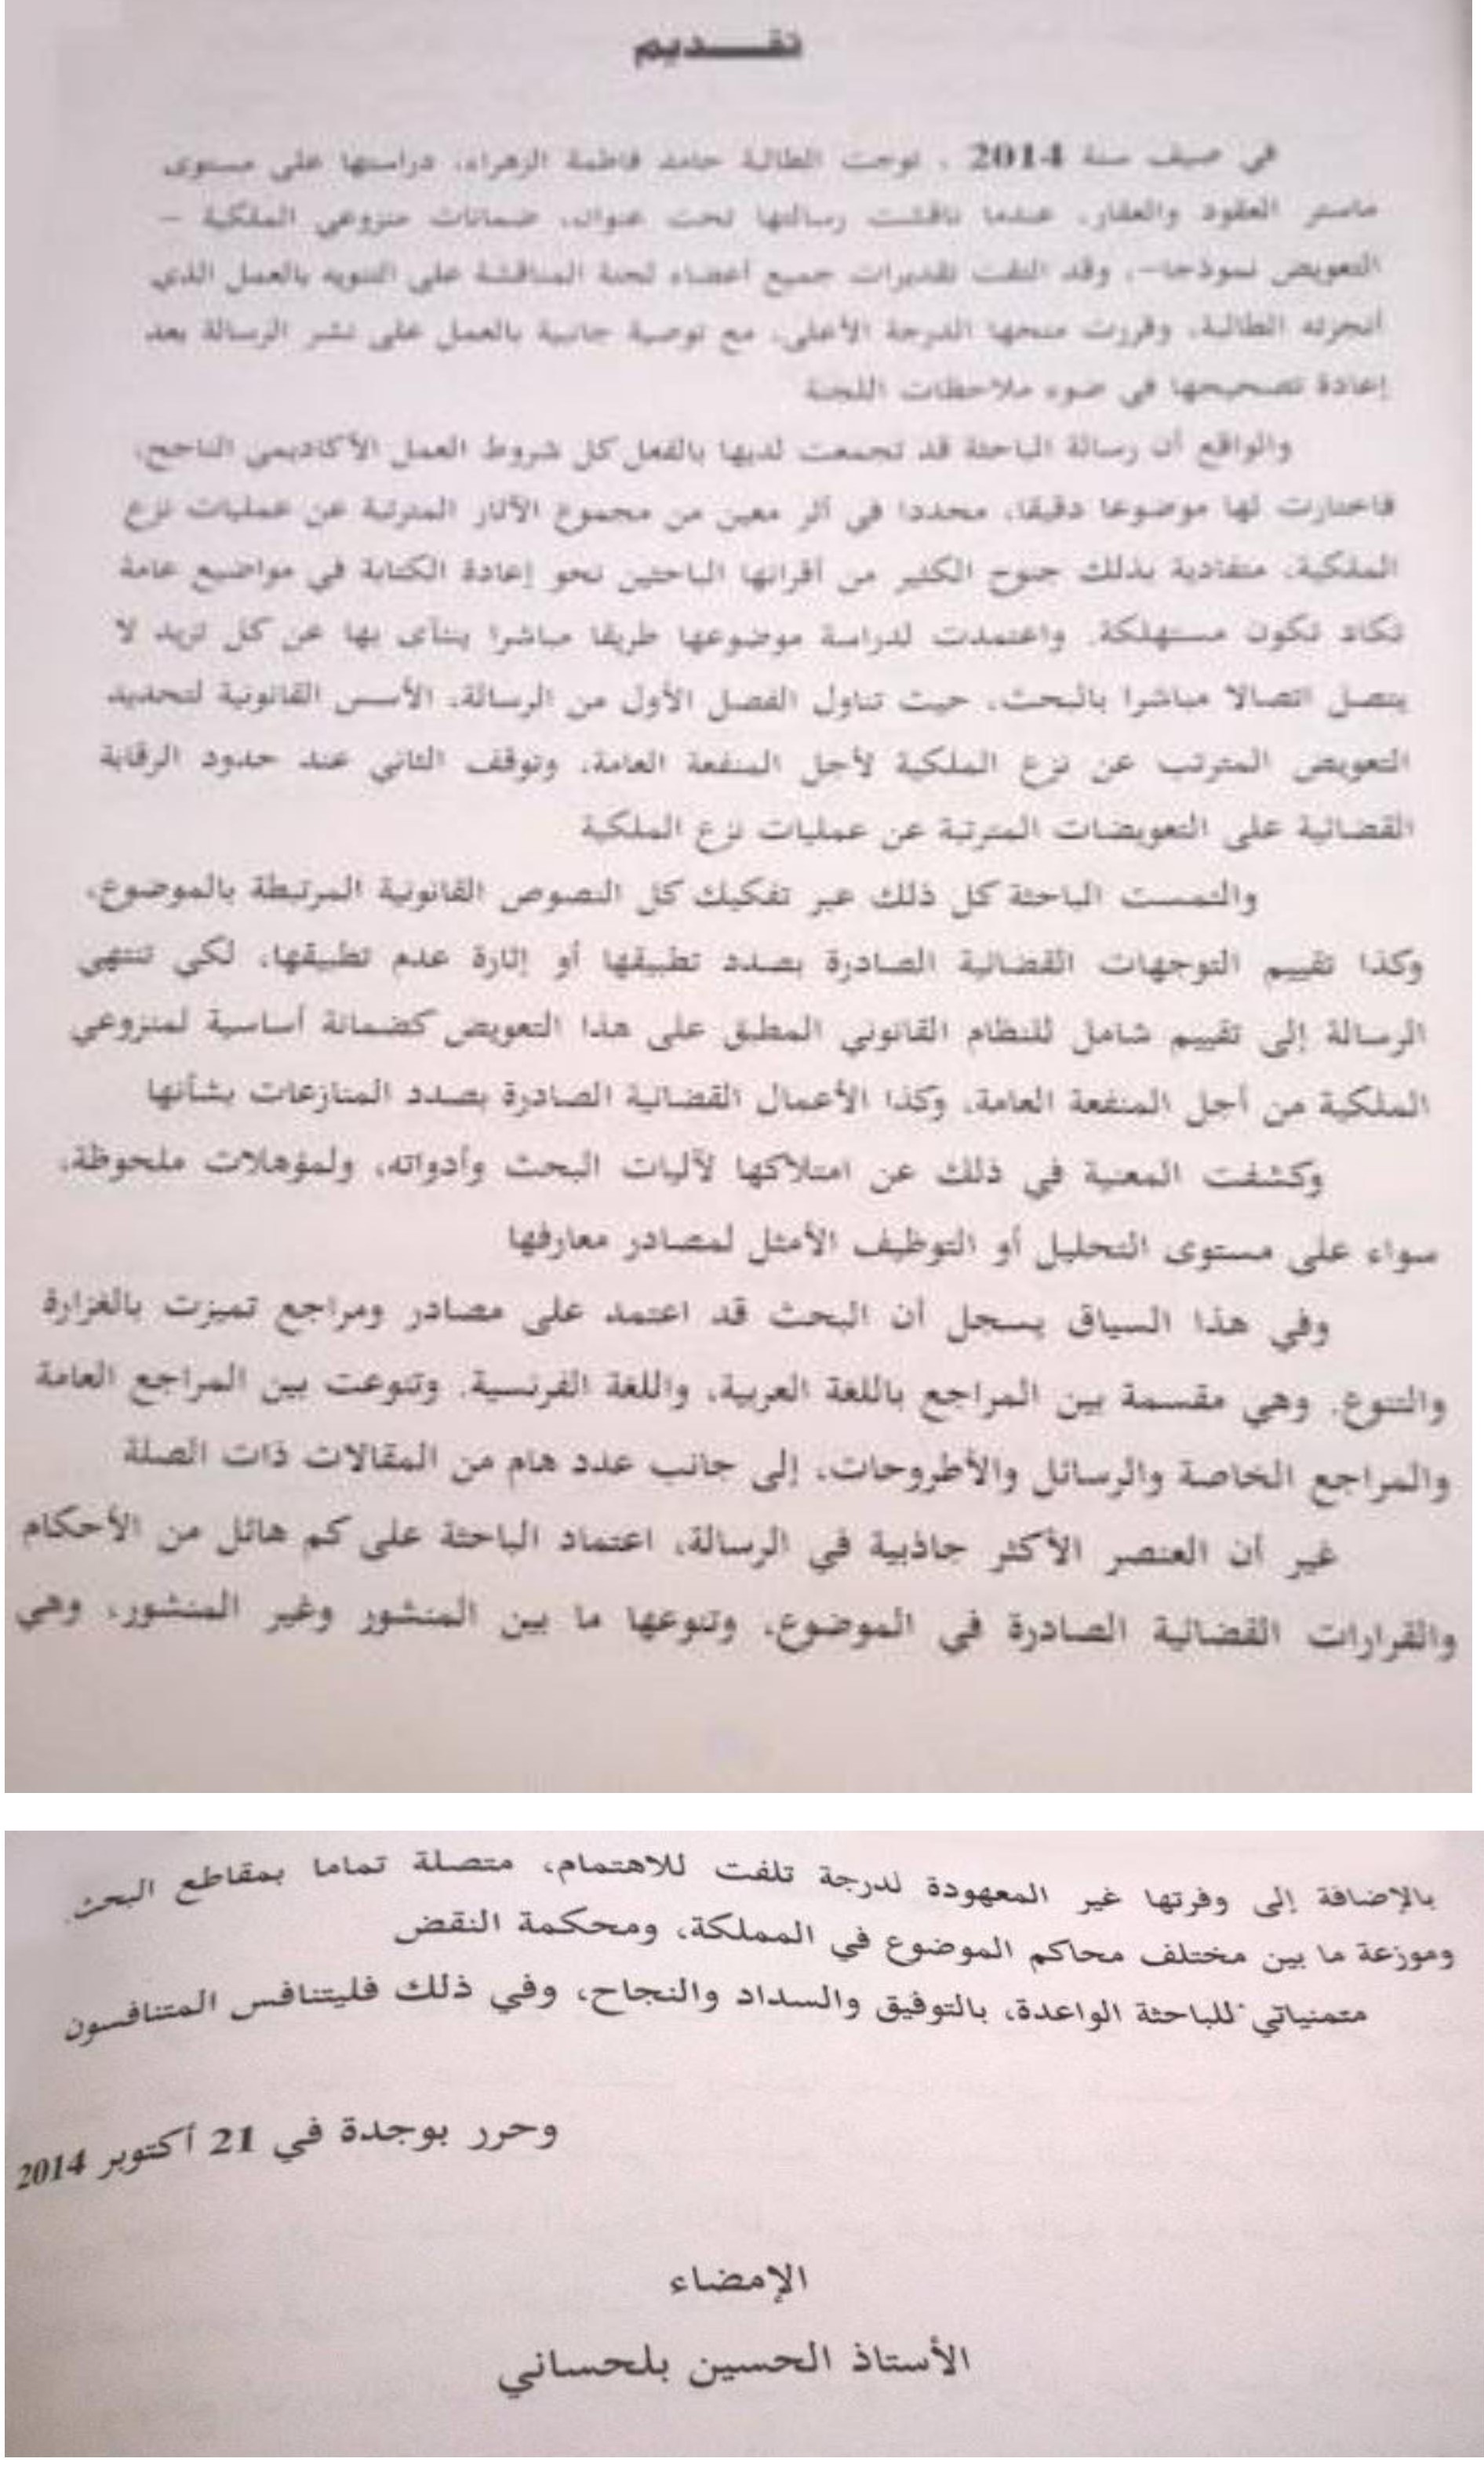 تقـــديم
في صيف سنة 2014 ، توجت الطالبة حامد فاطمة الزهراء، دراستها على مستوى
ماستر العقود والعقار، عندما ناقشت رسالتها تحت عنوان، ضمانات منزوعي الملكية –
التعويض نموذجا–، وقد التقت تقديرات جميع أعضاء لجنة المناقشة على التنويه بالعمل الذي
أنجزته الطالبة، وقررت منحها الدرجة الأعلى، مع توصية جانبية بالعمل على نشر الرسالة بعد
إعادة تصحيحها في ضوء ملاحظات اللجنة
والواقع أن رسالة الباحثة قد تجمعت لديها بالفعل كل شروط العمل الأكاديمي الناجح،
فاختارت لها موضوعا دقيقا، محددا في أثر معين من مجموع الآثار المترتبة عن عمليات نزع
الملكية، متفادية بذلك جنوح الكثير من أقرانها الباحثين نحو إعادة الكتابة في مواضيع عامة
تكاد تكون مستهلكة. واعتمدت لدراسة موضوعها طريقا مباشرا ينأى بها عن كل تزيد لا
يتصل اتصالا مباشرا بالبحث، حيث تناول الفصل الأول من الرسالة، الأسس القانونية لتحديد
التعويض المترتب عن نزع الملكية لأجل المنفعة العامة، وتوقف الثاني عند حدود الرقابة
القضائية على التعويضات المترتبة عن عمليات نزع الملكية
والتمست الباحثة كل ذلك عبر تفكيك كل النصوص القانونية المرتبطة بالموضوع،
وكذا تقييم التوجهات القضائية الصادرة بصدد تطبيقها أو إثارة عدم تطبيقها، لكي تنتهي
الرسالة إلى تقييم شامل للنظام القانوني المطبق على هذا التعويض كضمانة أساسية لمنزوعي
الملكية من أجل المنفعة العامة، وكذا الأعمال القضائية الصادرة بصدد المنازعات بشأنها
وكشفت المعنية في ذلك عن امتلاكها لآليات البحث وأدواته، ولمؤهلات ملحوظة،
سواء على مستوى التحليل أو التوظيف الأمثل لمصادر معارفها
وفي هذا السياق يسجل أن البحث قد اعتمد على مصادر ومراجع تميزت بالغزارة
والتنوع. وهي مقسمة بين المراجع باللغة العربية، واللغة الفرنسية. وتنوعت بين المراجع العامة
والمراجع الخاصة والرسائل والأطروحات، إلى جانب عدد هام من المقالات ذات الصلة
غير أن العنصر الأكثر جاذبية في الرسالة، اعتماد الباحثة على كم هائل من الأحكام
والقرارات القضائية الصادرة في الموضوع، وتنوعها ما بين المنشور وغير المنشور، وهي
بالإضافة إلى وفرتها غير المعهودة لدرجة تلفت للاهتمام، متصلة تماما بمقاطع البحث.
وموزعة ما بين مختلف محاكم الموضوع في المملكة، ومحكمة النقض
متمنياتي للباحثة الواعدة، بالتوفيق والسداد والنجاح، وفي ذلك فليتنافس المتنافسون
وحرر بوجدة في 21 أكتوبر 2014
الإمضاء
الأستاذ الحسين بلحساني